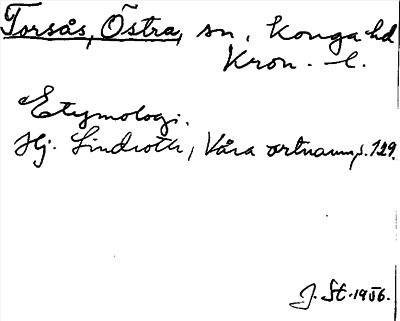 Torsås, Östra, sn, Konga hd
Kron. l.
Etymologi.
Hj. Lindroth, Våra ortnamn, s. 129.
J. St. 1956.